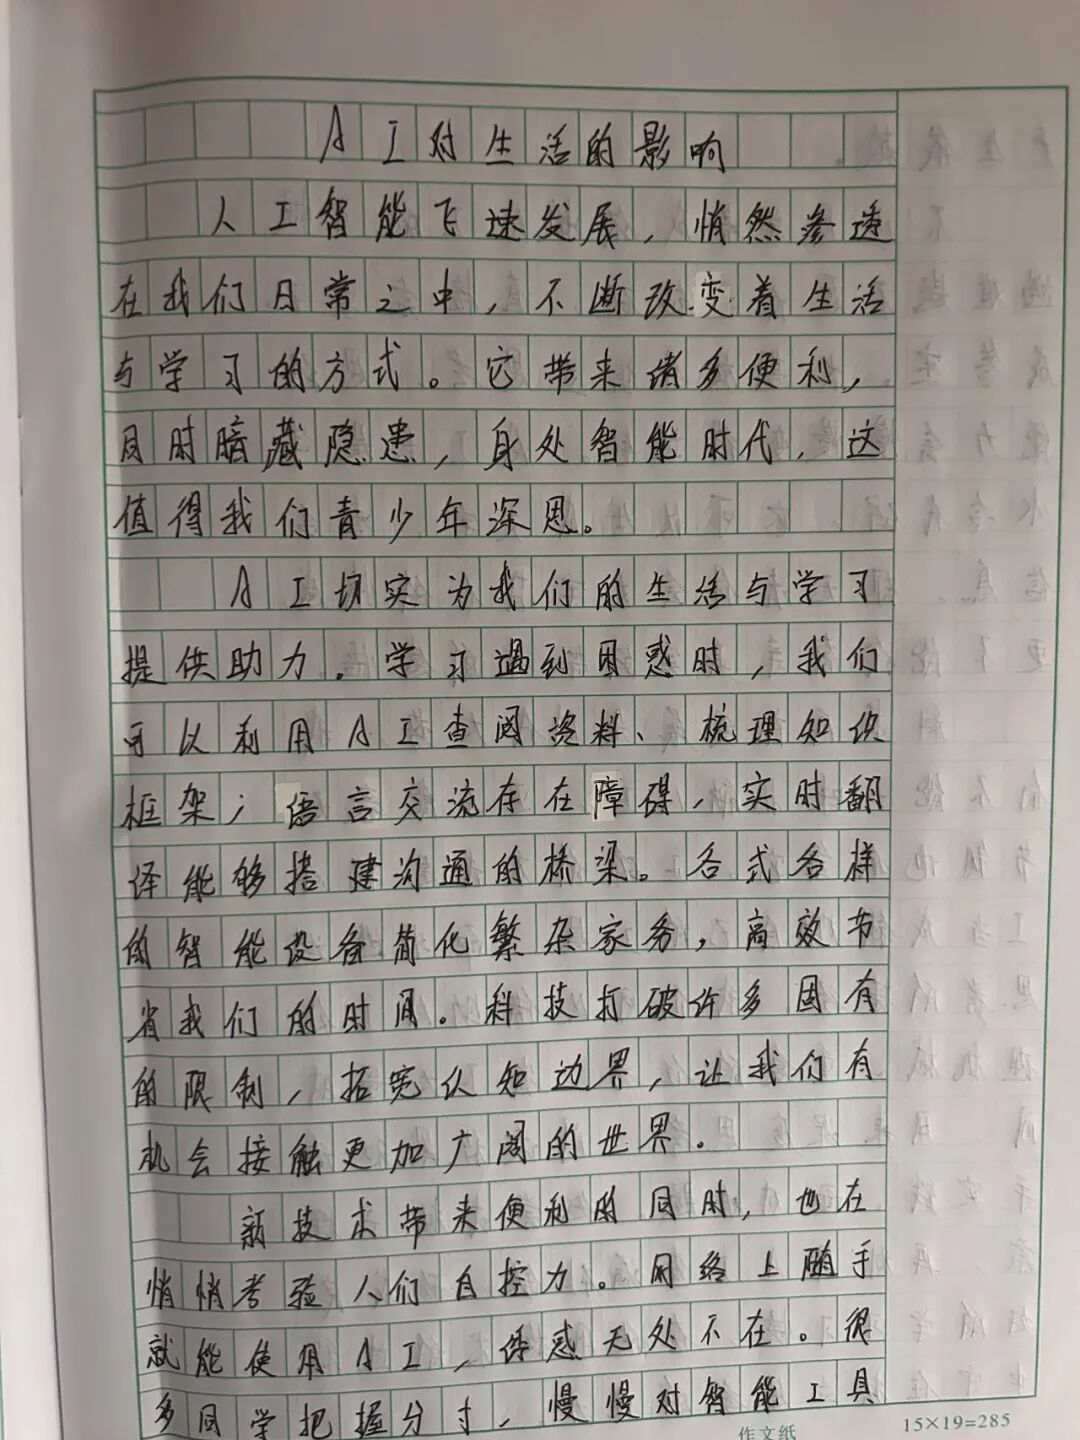 AI对生活的影响
人工智能飞速发展,悄然渗透
在我们日常之中,不断改变着生活
与学习的方式。它带来诸多便利,
同时暗藏隐患,身处智能时代,这
值得我们青少年深思。
AI切实为我们的生活与学习
提供助力。学习遇到困惑时,我们
可以利用AI查阅资料、梳理知识
框架;语言交流存在障碍,实时翻
译能够搭建沟通的桥梁。各式各样
的智能设备简化繁杂家务,高效节
省我们的时间。科技打破许多固有
的限制,拓宽认知边界,让我们有
机会接触更加广阔的世界。
新技术带来便利的同时,也在
悄悄考验人们自控力。网络上随手
就能使用AI,诱惑无处不在。很
多同学把握分寸,慢慢对智能工具
作文纸 15×19=285